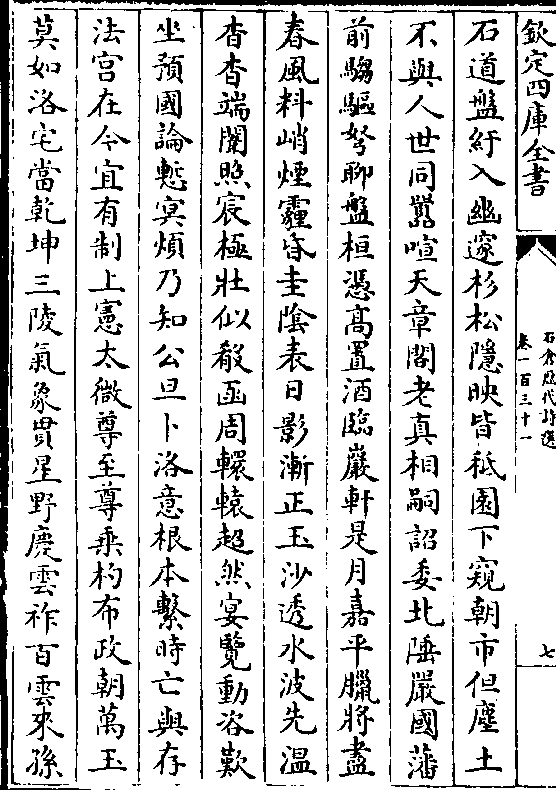 欽定四庫全書
石倉歷代詩選
卷一百三十一
七
石道盤紆入幽邃杉松隱映皆秪園下窺朝市但塵土
不與人世同囂喧天章閣老真相嗣詔委北陲嚴國藩
前騶驅弩聊盤桓憑高置酒臨巖軒是月嘉平臘將盡
春風料峭煙霾昏圭陰表日影漸正玉沙透水波先溫
杳杳端闈照宸極壯似殽函周轘轅超然宴覽動咨歎
坐預國論慙寘煩乃知公旦卜洛意根本繫時亡與存
法宮在今宜有制上憲太微尊至尊乘杓布政朝萬玉
莫如洛宅當乾坤三陵氣象貫星野慶雲祚百雲來孫